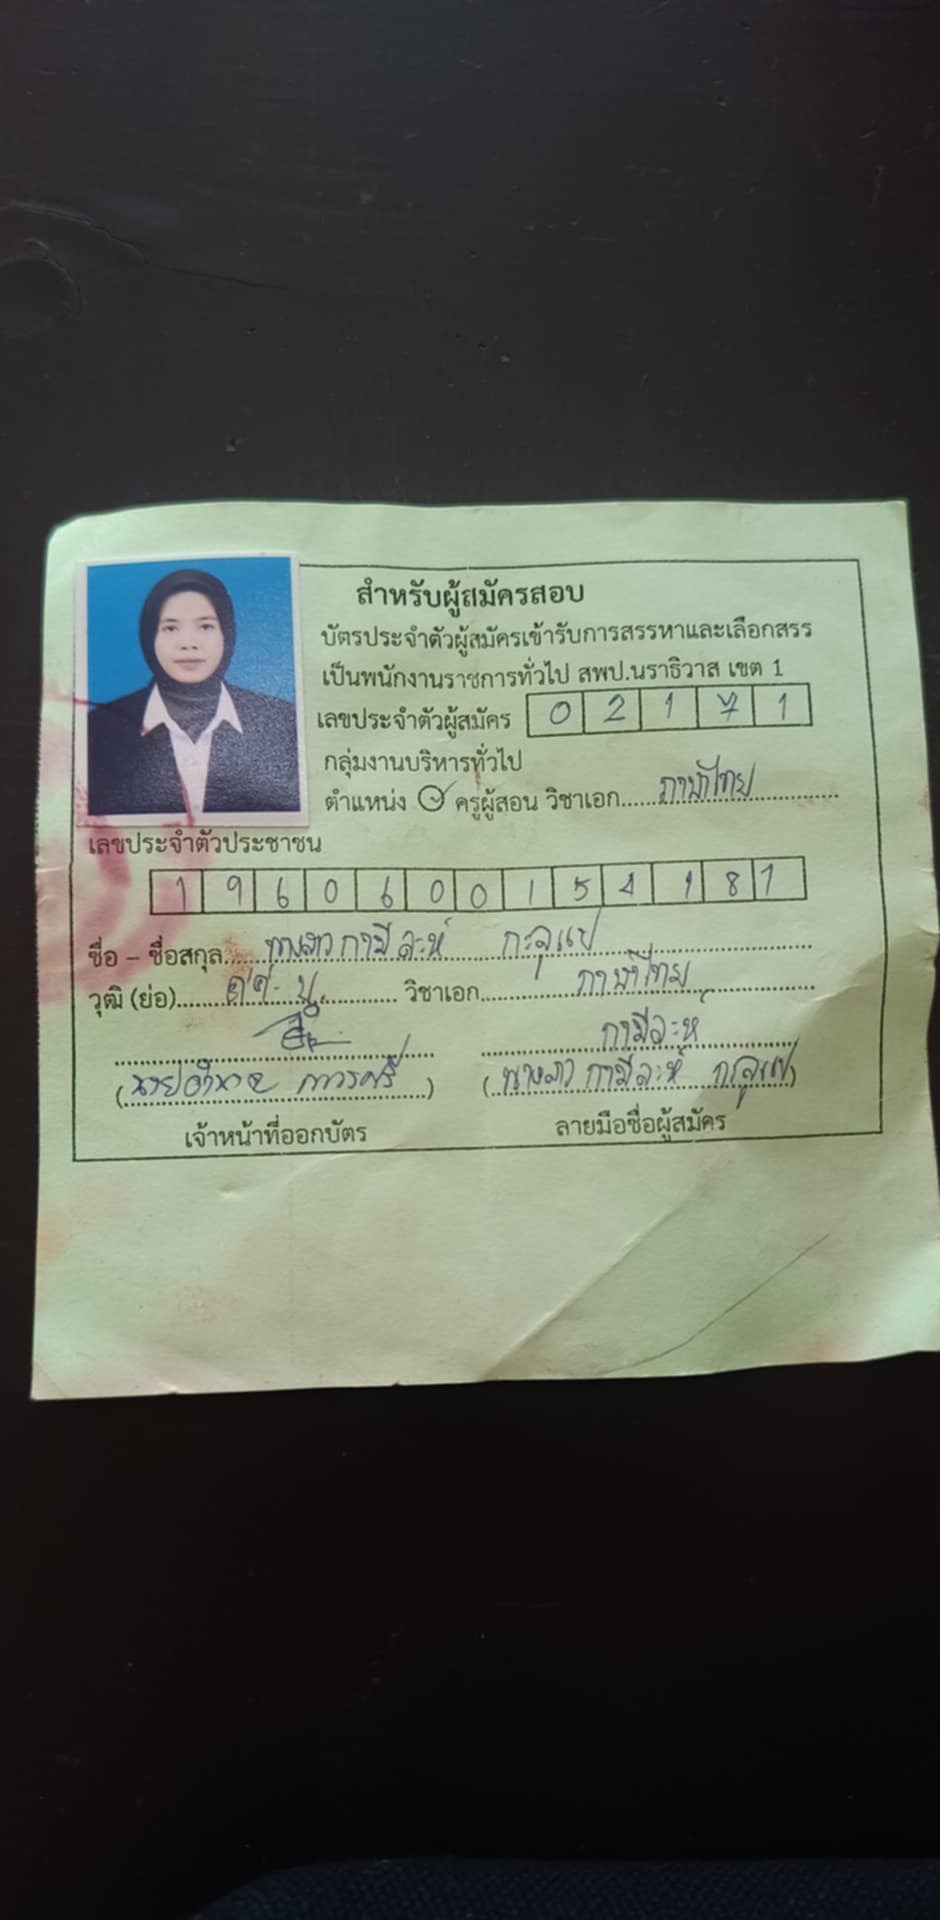 สำหรับผู้สมัครสอบ
บัตรประจำตัวผู้สมัครเข้ารับการสรรหาและเลือกสรร
เป็นพนักงานราชการทั่วไป สพป.นราธิวาส เขต 1
เลขประจำตัวผู้สมัคร 0 2 1 7 1
กลุ่มงานบริหารทั่วไป
ตำแหน่ง ครูผู้สอน วิชาเอก ภาษาไทย
เลขประจำตัวประชาชน
1 9 6 0 6 0 0 1 5 4 1 8 1
ชื่อ – ชื่อสกุล นางสาว กามีละห์ กะลุแป
วุฒิ (ย่อ) วิชาเอก ภาษาไทย
กามีละห์
(นาย) (นางสาว กามีละห์ กะลุแป)
เจ้าหน้าที่ออกบัตร ลายมือชื่อผู้สมัคร